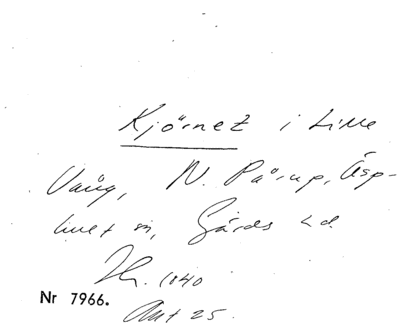 Kjörnet i Lille
Vång, N. Påarp, Äsp-
huet m, Gärds hd.
Hr. 1040
Nr 7966.
Ant 25.